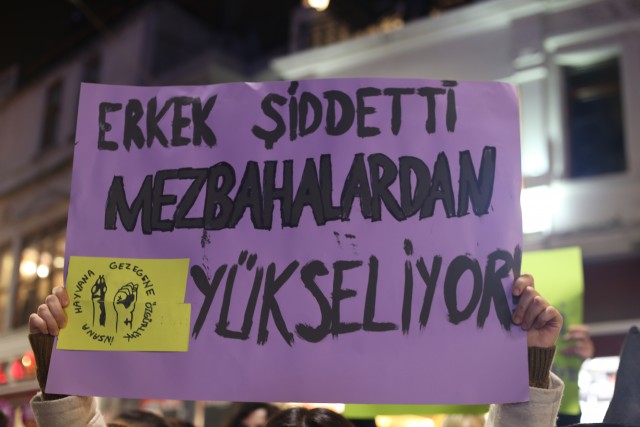 ERKEK ŞİDDETTİ
MEZBAHALARDAN
YÜKSELİYOR!
İNSANA HAYVANA GEZEGENE ÖZGÜRLÜK